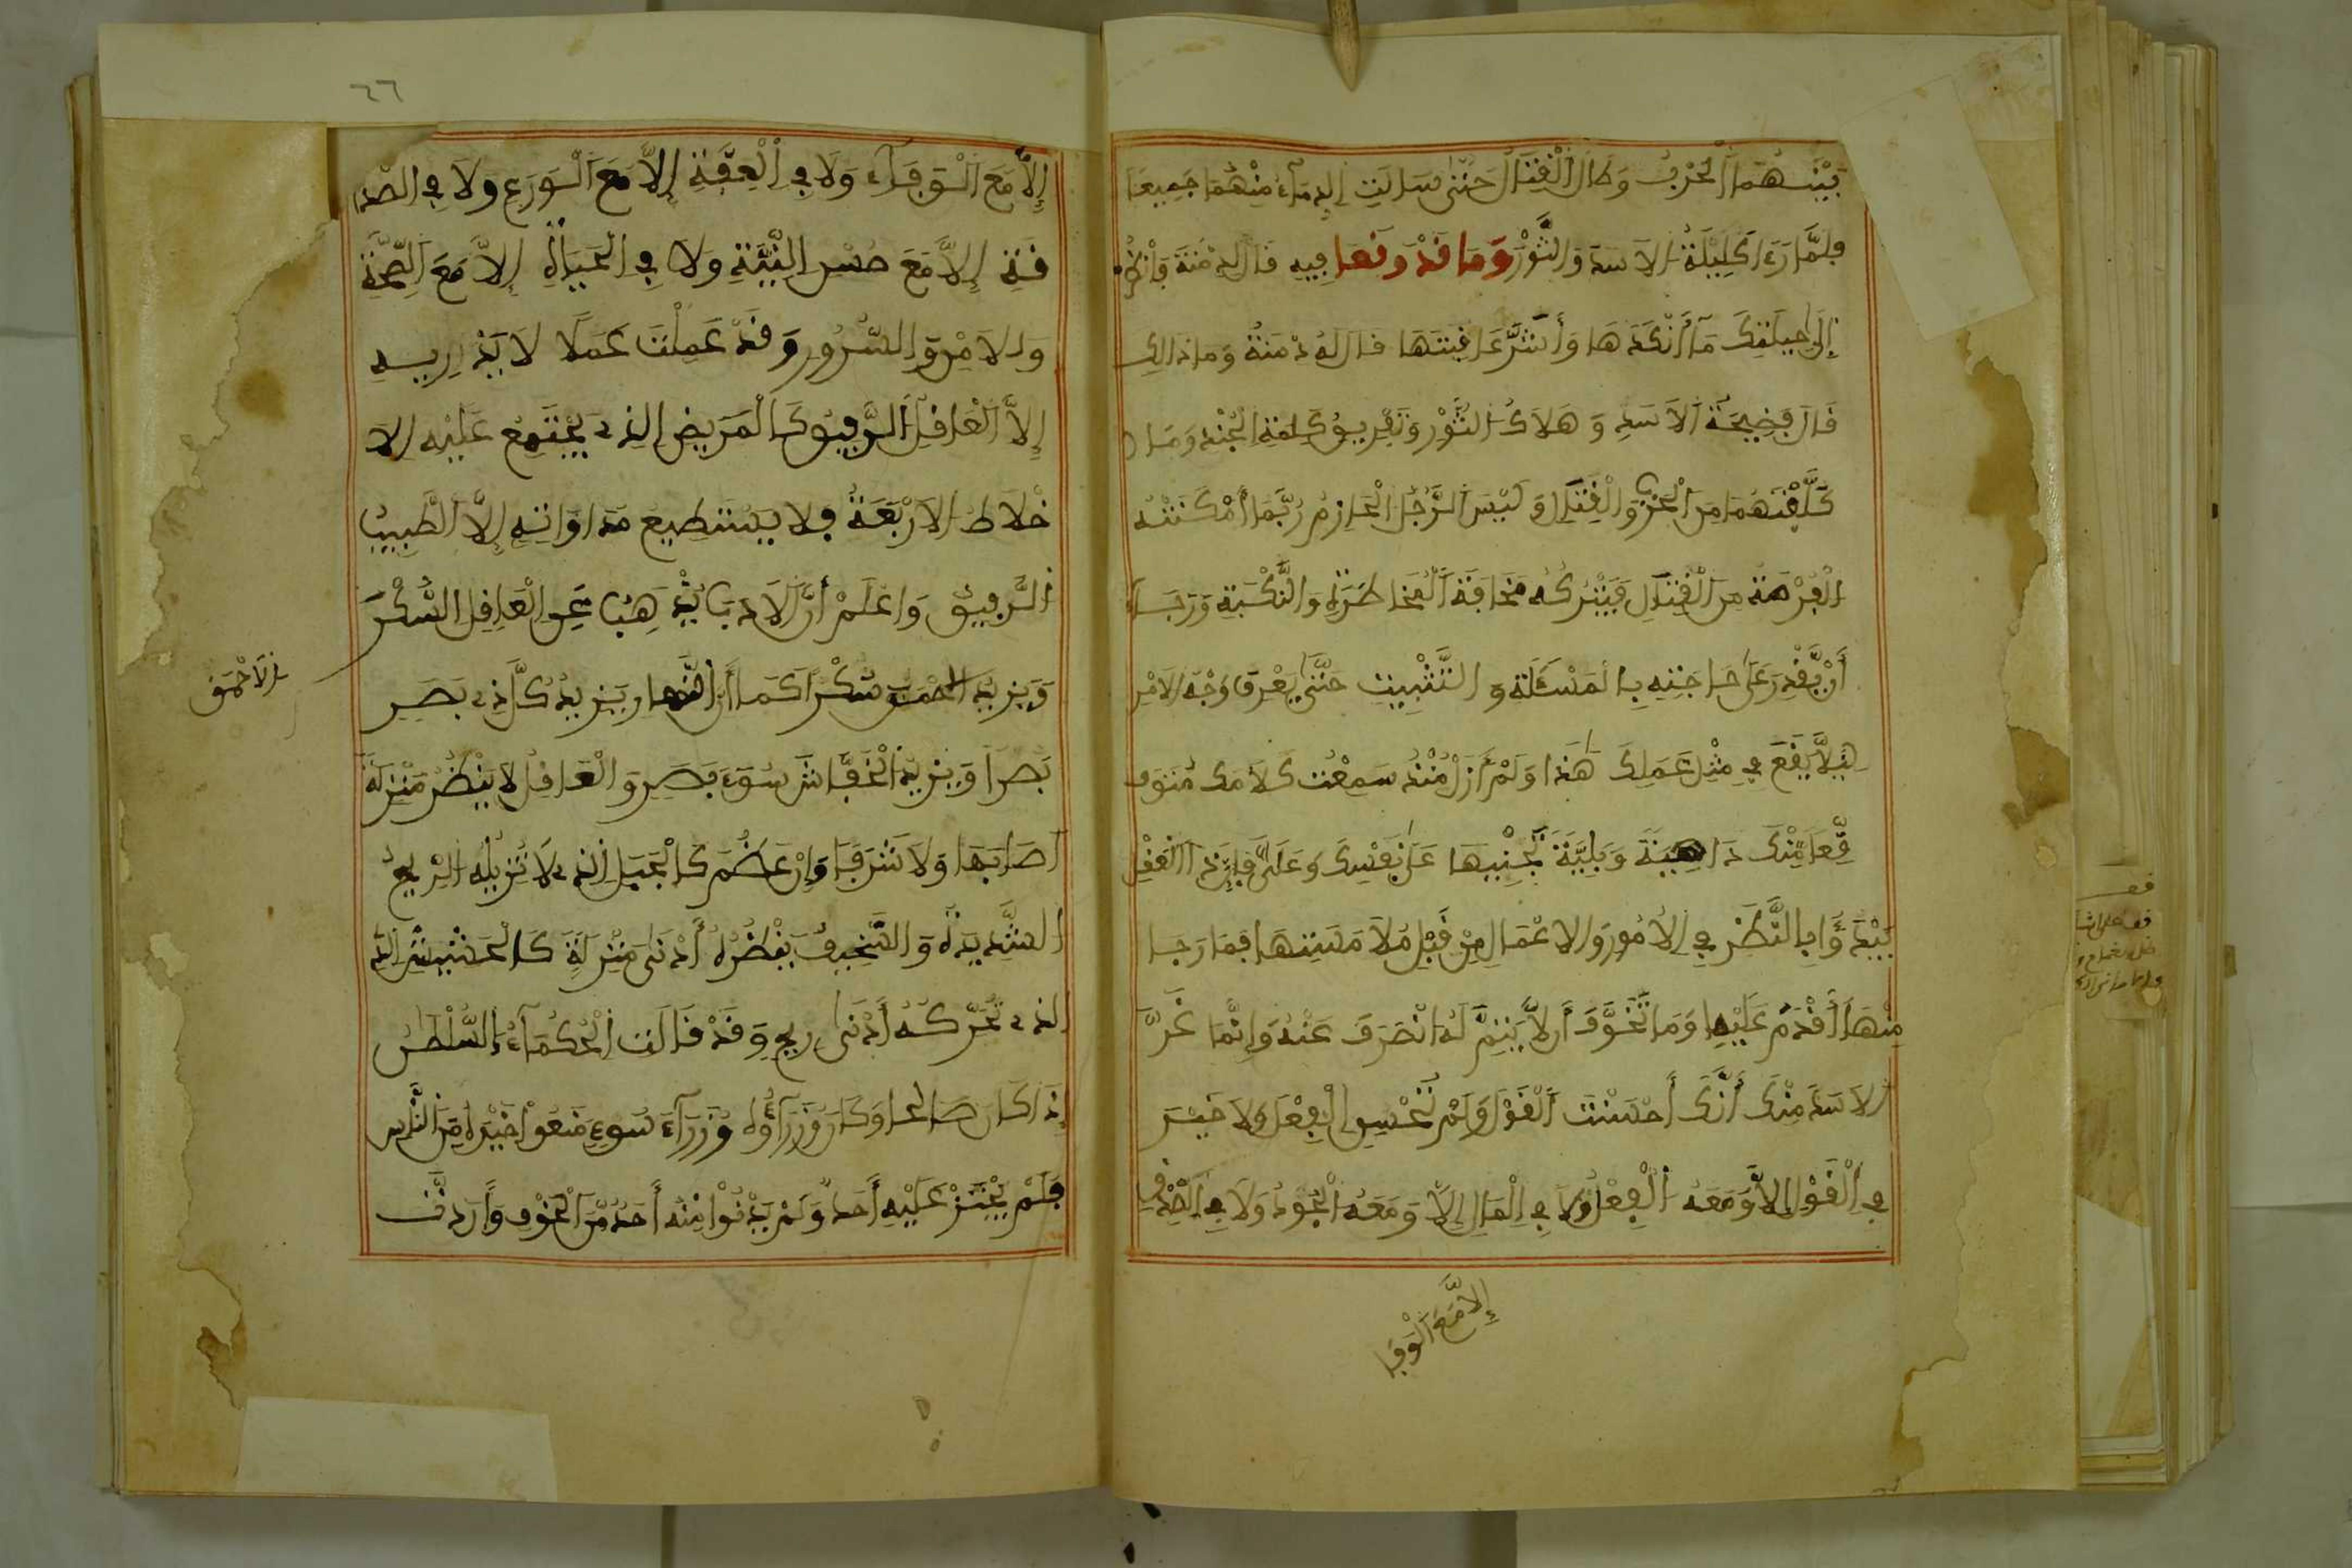 بَيْنَهُمَا الْحَرْبُ وَطَالَ الْقِتَالُ حَتَّى سَالَتِ الدِّمَآءُ مِنْهُمَا جَمِيعًا
فَلَمَّا رَءَا كَلِيلَةُ الاَسَدَ وَالثَّوْرَ وَمَا قَدْ وَقَعَا فِيهِ قَالَ لِدِمْنَةَ وَانْظُرْ
إِلَى حِيلَتِكَ مَآ أَنْكَدَهَا وَأَشَرَّ عَاقِبَتَهَا قَالَ لَهُ دِمْنَةُ وَمَا ذَالِكَ
قَالَ فَضِيحَةُ الاَسَدِ وَهَلاَكُ الثَّوْرِ وَتَفْرِيقُ كَلِمَةِ الْجُنْدِ وَمَا
كَلَّفْتَهُمَا مِنَ الْحَرْبِ وَالْقِتَالِ وَلَيْسَ الرَّجُلُ الْحَازِمُ رُبَّمَا أَمْكَنَتْهُ
الْفُرْصَةُ مِنَ الْقِتَالِ فَيَتْرُكُهُ مَخَافَةَ الْمُخَاطَرَةِ وَالنَّكْبَةِ وَرَجَآءَ
أَنْ يَّقْدِرَ عَلَى حَاجَتِهِ بِالْمَسْئَلَةِ وَالتَّثْبِيتِ حَتَّى يَعْرِفَ وَجْهَ الاَمْرِ
لِيَلاَّ يَقَعَ فِي مِثْلِ عَمَلِكَ هَذَا وَلَمْ أَزَلْ مُنْذُ سَمِعْتُ كَلاَمَكَ مُتَوَ
قِّعًا مِّنْكَ دَاهِيَةً وَبَلِيَّةً تَجْنِيهَا عَلَى نَفْسِكَ وَعَلَيَّ فَإِنَّ ذَا الْعَقْلِ
يَبْدَؤُا بِالنَّظَرِ فِي الاُمُورِ وَالاَعْمَالِ مِنْ قَبْلِ مُلاَمَسَتِهَا فَمَا رَجَا
مِنْهَا أَقْدَمَ عَلَيْهِ وَمَا تَخَوَّفَ أَن لاَّ يَتِمَّ لَهُ انْصَرَفَ عَنْهُ وَإِنَّمَا غَرَّ
الاَسَدَ مِنْكَ أَنَّكَ أَحْسَنْتَ الْقَوْلَ وَلَمْ تُحْسِنِ الْفِعْلَ وَلاَ خَيْرَ
فِي الْقَوْلِ إِلاَّ وَمَعَهُ الْفِعْلُ وَلاَ فِي الْمَالِ إِلاَّ وَمَعَهُ الْجُودُ وَلاَ فِي الصِّدْقِ
إِلاَّ مَعَ الْوَفَا
٦٦
إِلاَّ مَعَ الْوَفَآءِ وَلاَ فِي الْعِفَّةِ إِلاَّ مَعَ الْوَرَعِ وَلاَ فِي الصَّدَ
قَةِ إِلاَّ مَعَ حُسْنِ النِّيَّةِ وَلاَ فِي الْحَيَاةِ إِلاَّ مَعَ الصِّحَّةِ
وَالاَمْنِ وَالسُّرُورِ وَقَدْ عَمِلْتَ عَمَلًا لاَ يُدَاوِيهِ
إِلاَّ الْعَاقِلُ الرَّفِيقُ كَالْمَرِيضِ الَّذِي يَجْتَمِعُ عَلَيْهِ الاَ
خْلاَطُ الاَرْبَعَةُ فَلاَ يَسْتَطِيعُ مُدَاوَاتِهِ إِلاَّ الطَّبِيبُ
الرَّفِيقُ وَاعْلَمْ أَنَّ الاَدَبَ يُذْهِبُ عَنِ الْعَاقِلِ السُّكْرَ
وَيَزِيدُ الاحْمَقَ سُكْرًا كَمَا أَنَّ النَّهَارَ يَزِيدُ كُلَّ ذِي بَصَرٍ
الاَحْمَقَ
بَصَرًا وَيَزِيدُ الْخُفَّاشَ سُوٓءَ بَصَرٍ وَالْعَاقِلُ لاَ يُبْطِرُهُ مَنْزِلَةٌ
أَصَابَهَا وَلاَ شَرَفًا وَإِنْ عَظُمَ كَالْجَبَلِ الَّذِي لاَ تُزِيلُهُ الرِّيحُ
الشَّدِيدَةُ وَالسَّخِيفُ يُبْطِرُهُ أَدْنَى مَنْزِلَةٍ كَالْحَشِيشِ
الَّذِي تُحَرِّكُهُ أَدْنَى رِيحٍ وَقَدْ قَالَتِ الْحُكَمَآءُ السُّلْطَانُ
إِذَا كَانَ صَالِحًا وَكَانَ وُزَرَآؤُهُ وُزَرَآءَ سُوءٍ مَنَعُوا خَيْرَهُ مِنَ النَّاسِ
فَلَمْ يَجْتَرْ عَلَيْهِ أَحَدٌ وَلَمْ يَدْنُوا مِنْهُ أَحَدٌ مِّنَ الْخَوْفِ وَأَرَدْتَّ